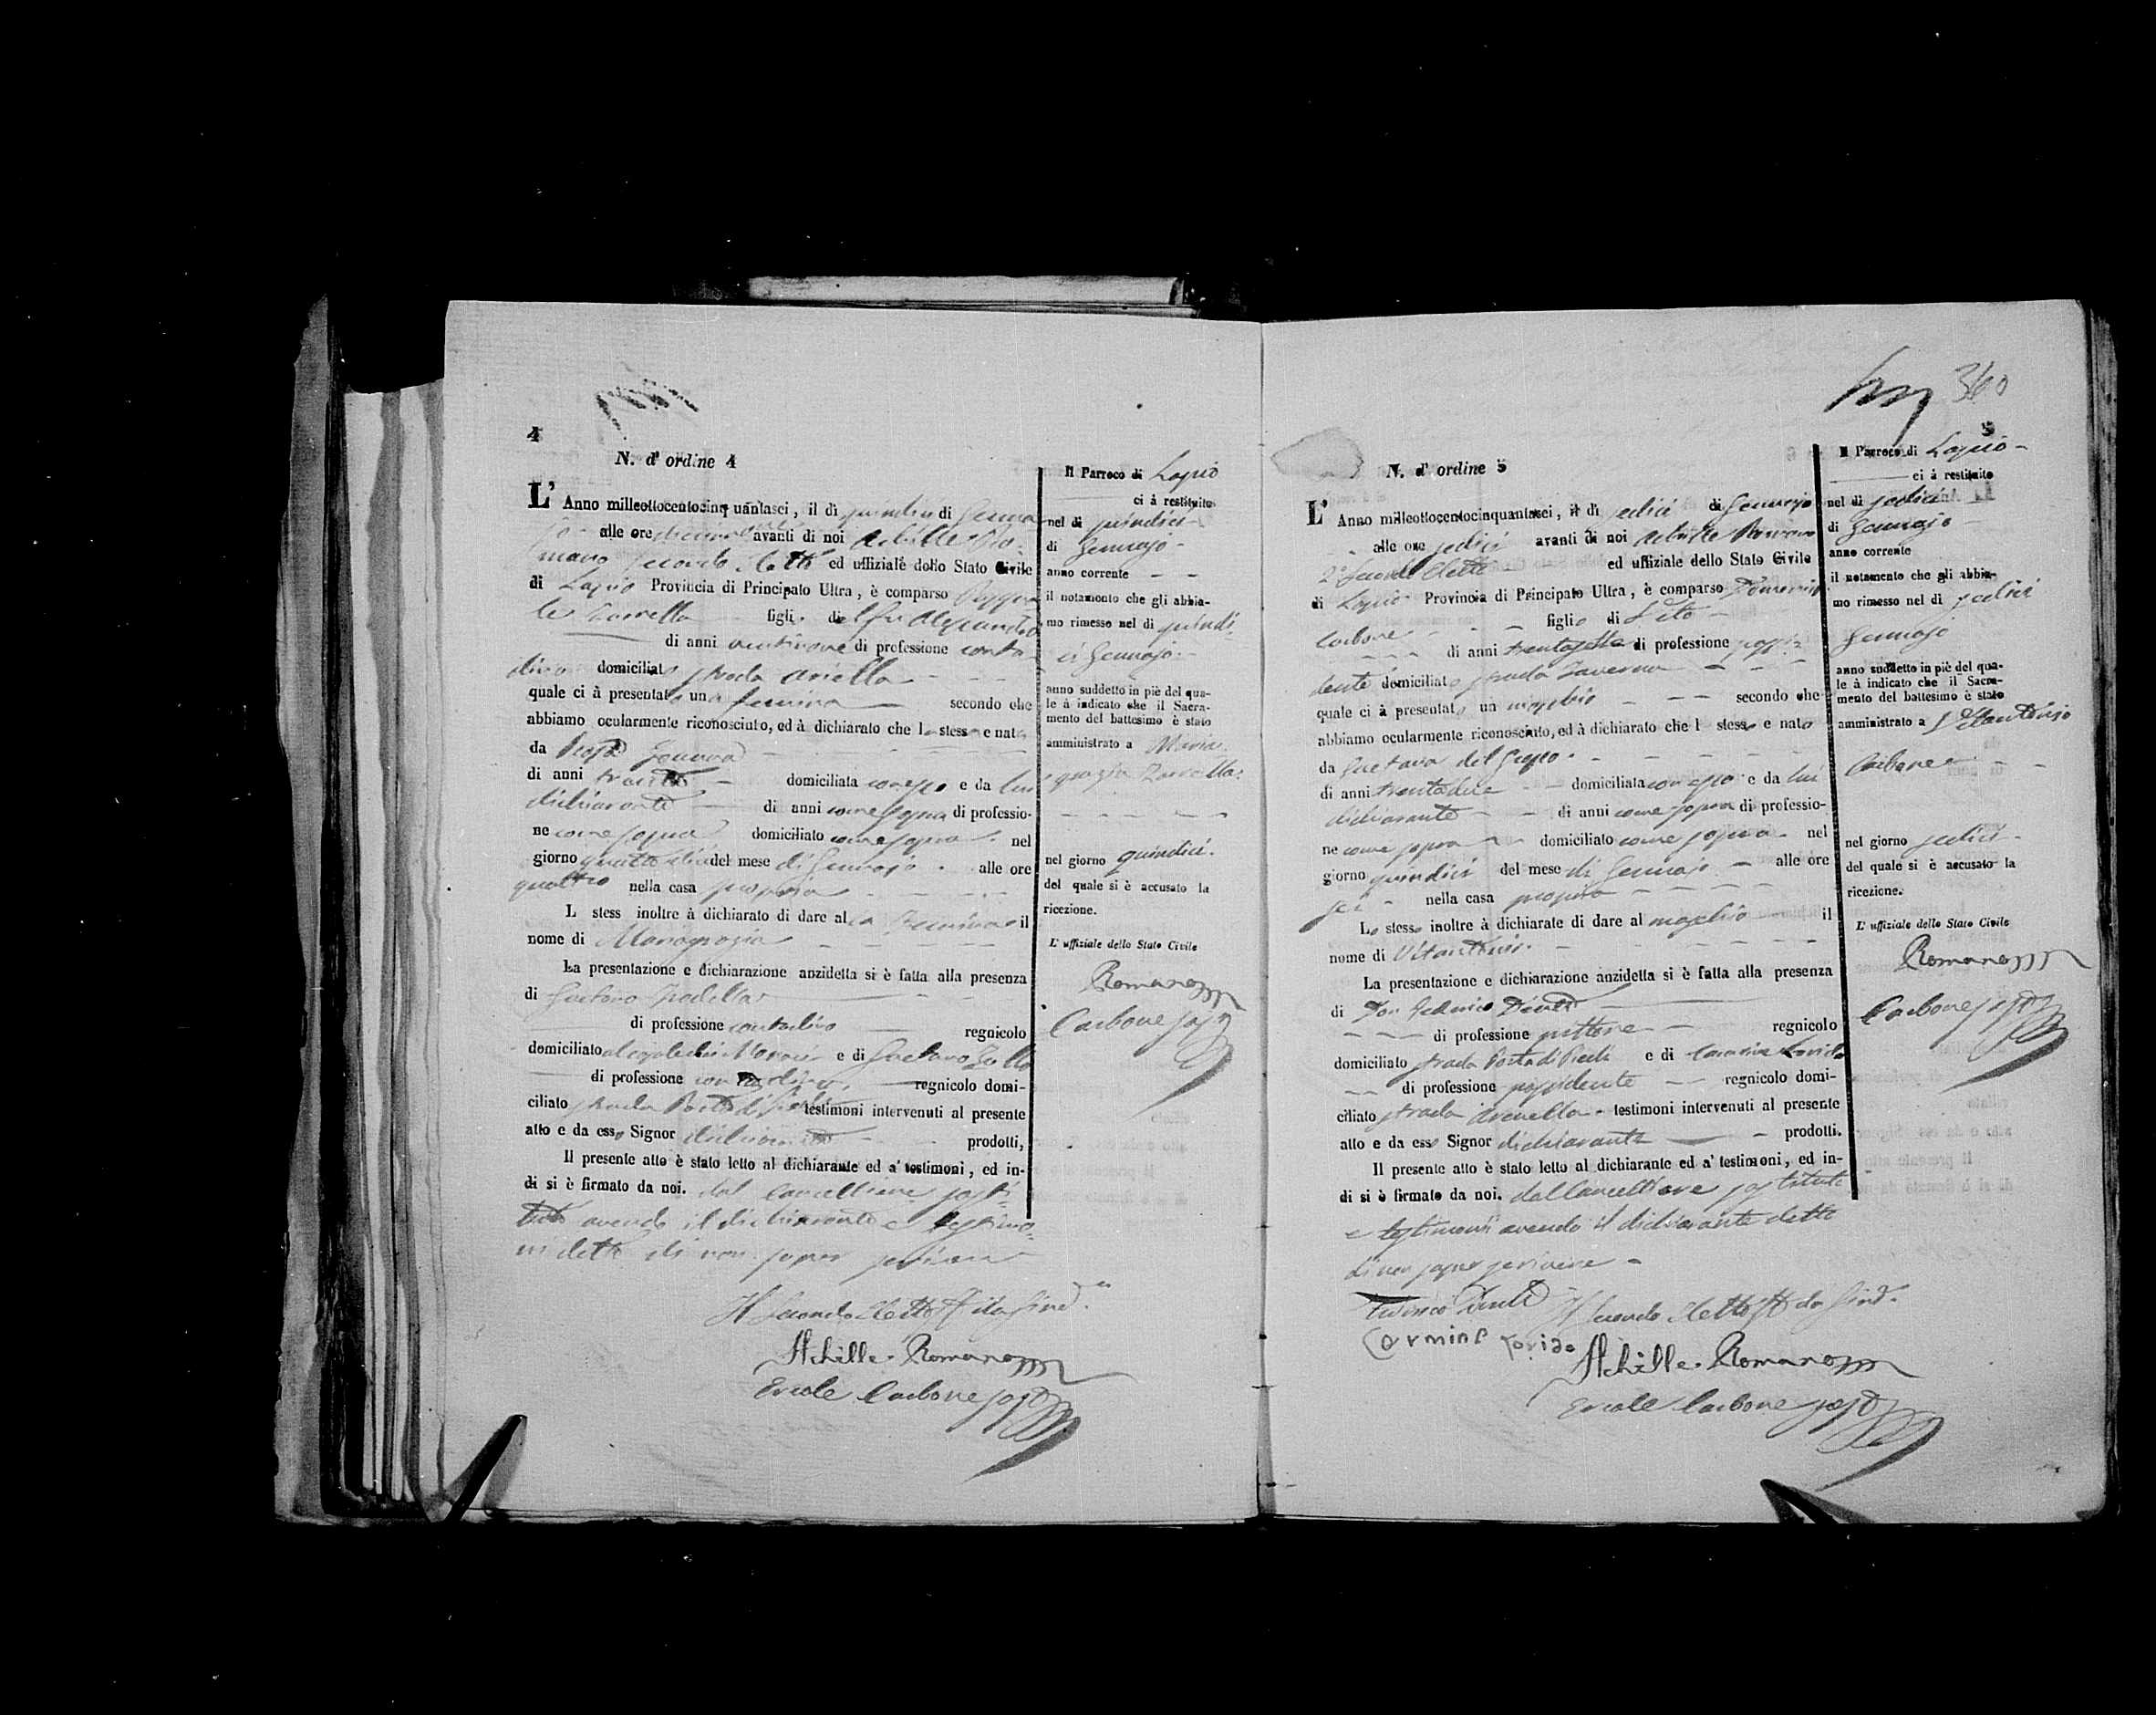 4
N. d'ordine 4
L' Anno milleottocentocinquantasei, il dì quindici di Genna
jo alle ore avanti di noi Achille Ro=
mano Secondo Eletto ed uffiziale dello Stato Civile
di Lapio Provincia di Principato Ultra, è comparso
figli di
di anni ventinove di professione conta
dino domiciliato strada Ariella
quale ci à presentato una femina secondo che
abbiamo ocularmente riconosciuto, ed à dichiarato che la stessa e nata
da
di anni domiciliata con esso e da lui
dichiarante di anni come sopra di professio-
ne come sopra domiciliato come sopra nel
giorno quattordici del mese di Gennajo alle ore
quattro nella casa propria
L stess inoltre à dichiarato di dare alla Femina il
nome di Mariagrazia
La presentazione e dichiarazione anzidetta si è fatta alla presenza
di Gaetano
di professione contadino regnicolo
domiciliato e di Gaetano
di professione contadino regnicolo domi-
ciliato strada testimoni intervenuti al presente
atto e da esso Signor dichiarante prodotti,
Il presente atto è stato letto al dichiarante ed a' testimoni, ed in-
di si è firmato da noi. dal Cancelliere sosti=
tuto avendo il dichiarante e testimo=
ni detto di non saper scrivere
Il Secondo Eletto
Achille Romano
Ercole Carbone sost
Il Parroco di Lapio
ci à restituito
nel dì quindici
di Gennajo
anno corrente
il notamento che gli abbia-
mo rimesso nel dì quindi=
ci Gennajo
anno suddetto in piè del qua-
le à indicato che il Sacra-
mento del battesimo è stato
amministrato a Maria
grazia
nel giorno quindici.
del quale si è accusato la
ricezione.
L' uffiziale dello Stato Civile
Romano
Carbone sost
360
5
N. d'ordine 5
L' Anno milleottocentocinquantasei, il dì sedici di Gennajo
alle ore sedici avanti di noi Achille Romano
2° Secondo Eletto ed uffiziale dello Stato Civile
di Lapio Provincia di Principato Ultra, è comparso
Carbone figlio di Vito
di anni trentasette di professione possi=
dente domiciliato strada Taverna
quale ci à presentato un maschio secondo che
abbiamo ocularmente riconosciuto, ed à dichiarato che l stesso e nato
da Gaetana del Grosso
di anni trentadue domiciliata con esso e da lui
dichiarante di anni come sopra di professio-
ne come sopra domiciliato come sopra nel
giorno quindici del mese di Gennajo alle ore
sei nella casa propria
Lo stesso inoltre à dichiarate di dare al maschio il
nome di Vitantonio
La presentazione e dichiarazione anzidetta si è fatta alla presenza
di Don
di professione regnicolo
domiciliato strada e di Carmine Lorido
di professione possidente regnicolo domi-
ciliato strada testimoni intervenuti al presente
atto e da esso Signor dichiarante prodotti.
Il presente atto è stato letto al dichiarante ed a' testimoni, ed in-
di si è firmato da noi. dal Cancelliere sostituto
e testimoni avendo il dichiarante detto
di non saper scrivere
Il Secondo Eletto
Carmine Lorido
Achille Romano
Ercole Carbone sost
Il Parroco di Lapio
ci à restituito
nel dì sedici
di Gennajo
anno corrente
il notamento che gli abbia-
mo rimesso nel dì sedici
Gennajo
anno suddetto in piè del qua-
le à indicato che il Sacra-
mento del battesimo è stato
amministrato a Vitantonio
Carbone
nel giorno sedici
del quale si è accusato la
ricezione.
L' uffiziale dello Stato Civile
Romano
Carbone sost